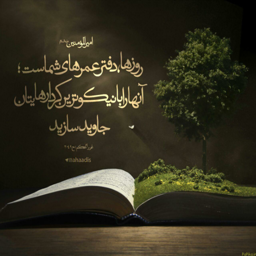 امیرالمؤمنین
روزها، دفتر عمرهای شماست؛
آنها را با نیکوترین کردارهایتان
جاوید سازید